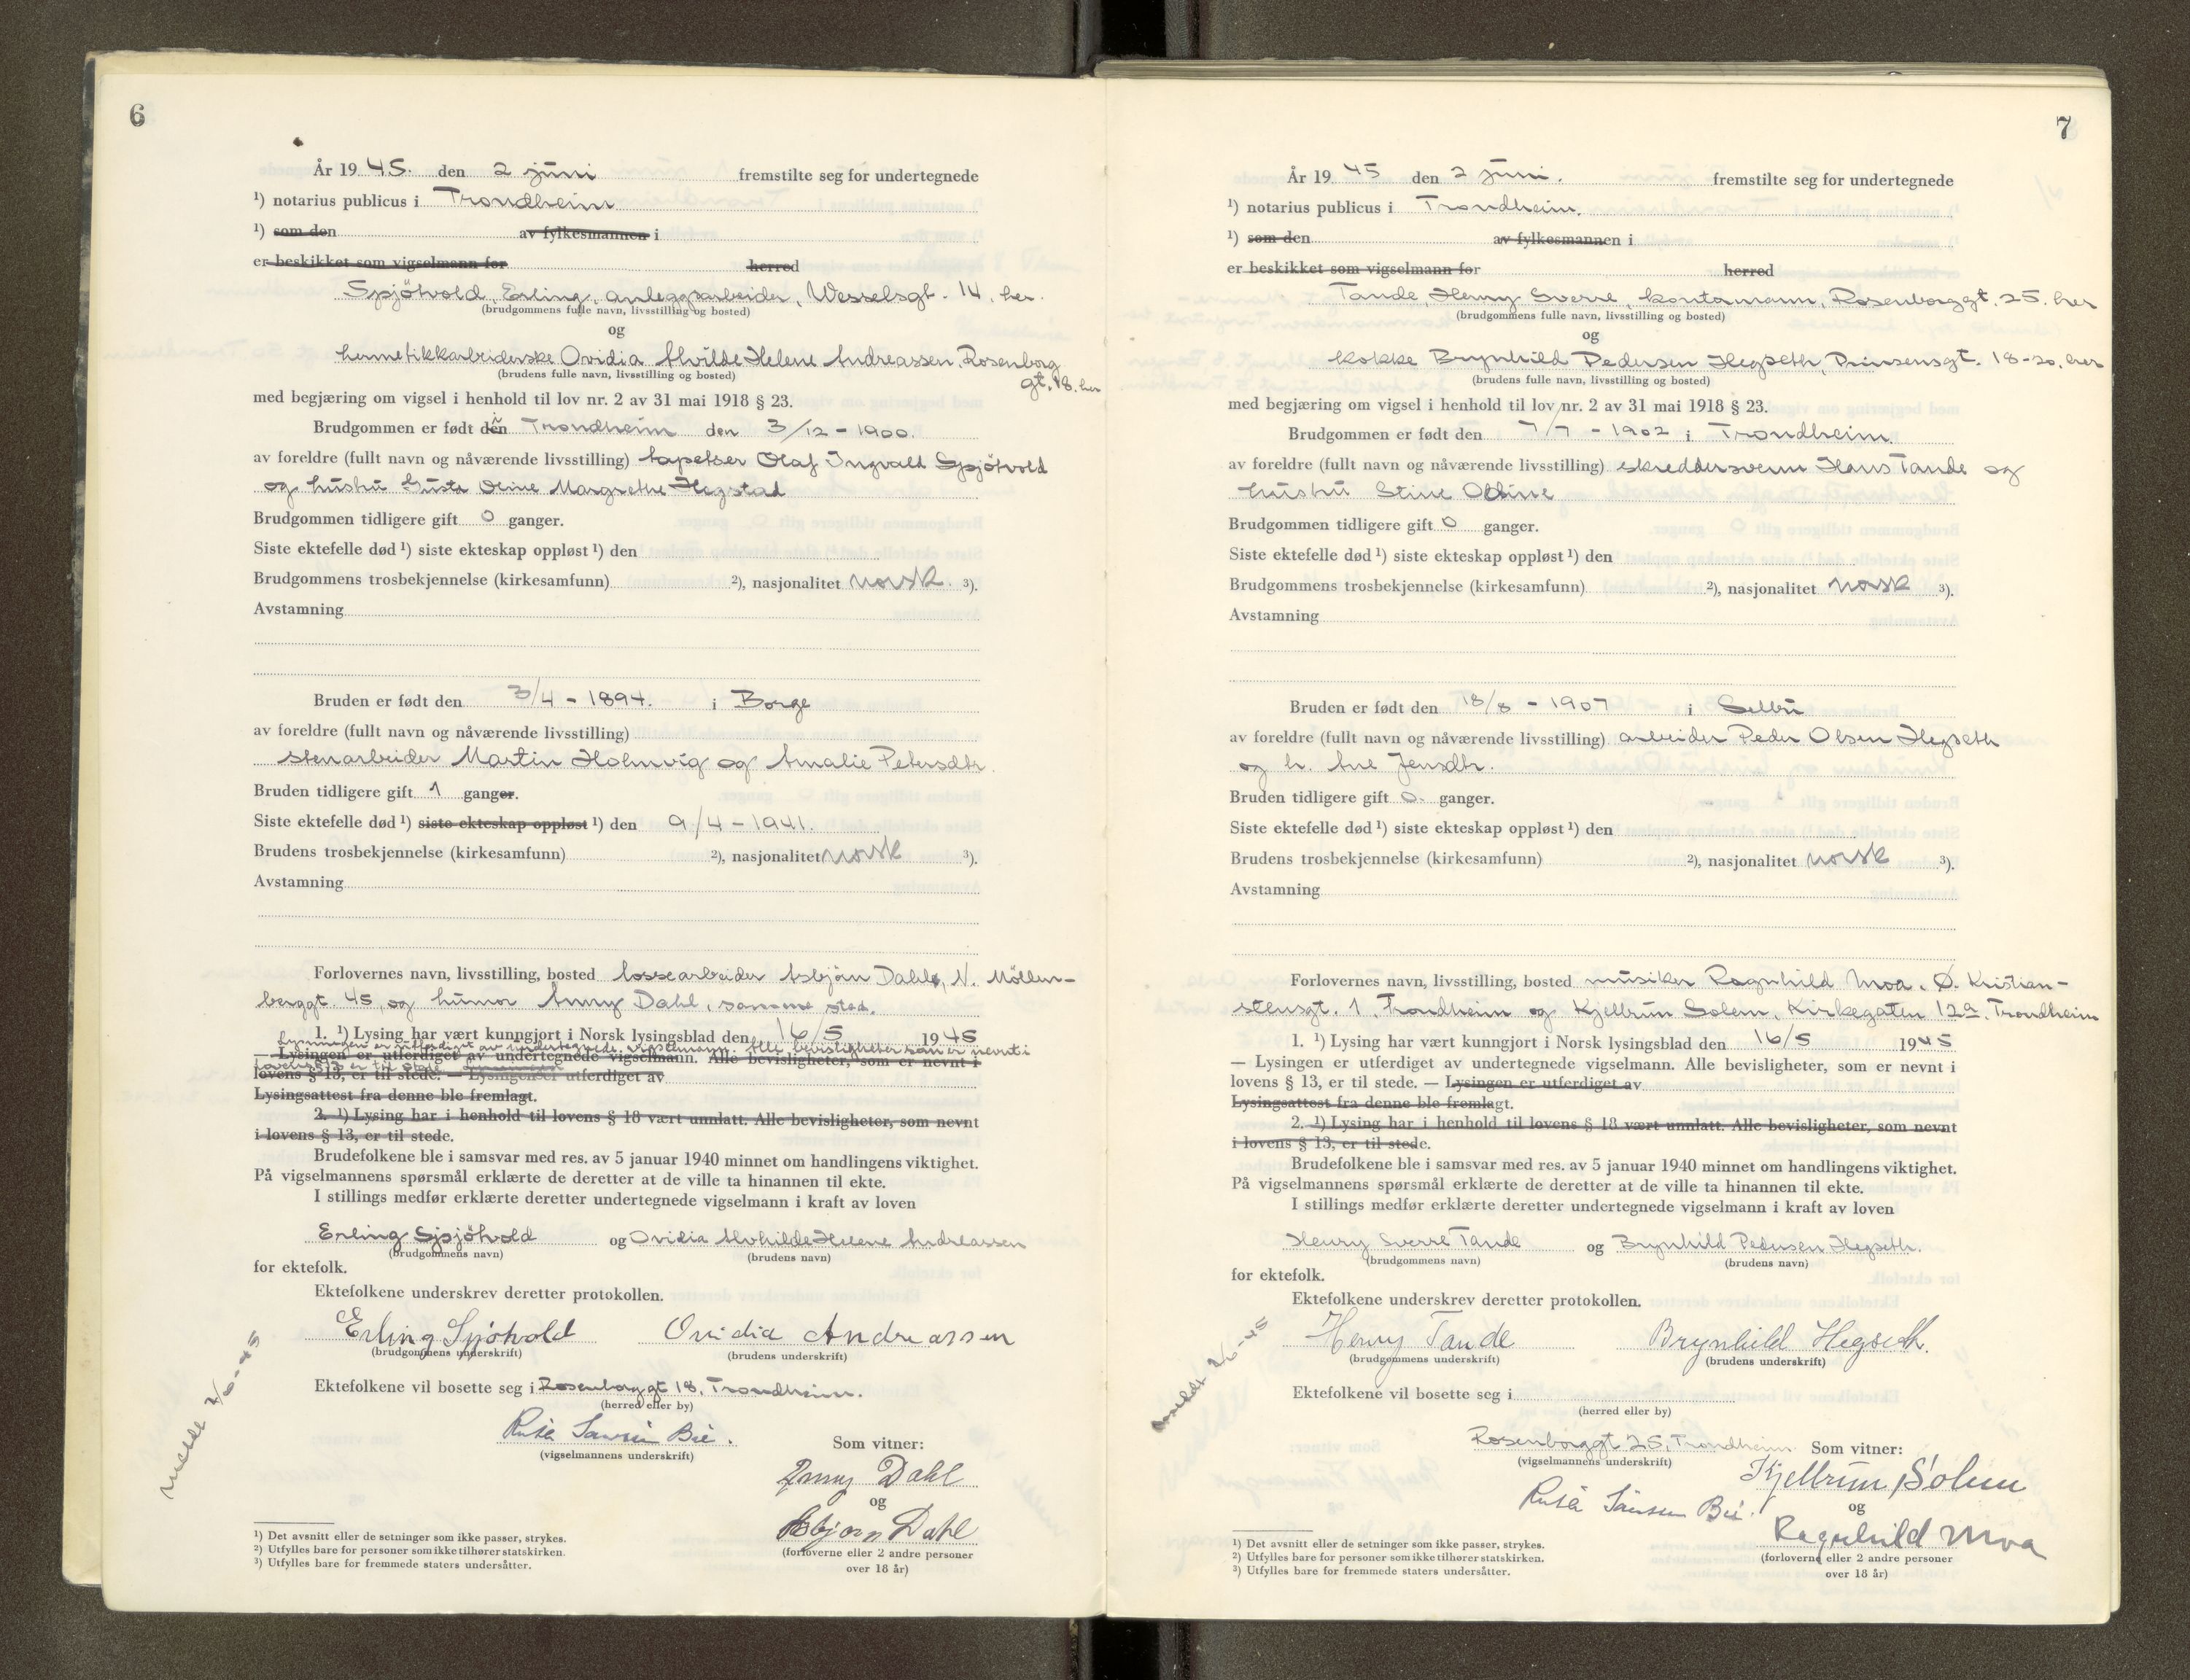 6
År 1945. den 2 juni fremstilte seg for undertegnede
¹) notarius publicus i Trondheim
¹) som den av fylkesmannen i
er beskikket som vigselmann for herred
Spjötvold, Erling, anleggsarbeider, Wesselsgt. 14, her.
(brudgommens fulle navn, livsstilling og bosted)
og
hermetikkarbeiderske Ovidia Alvilde Helene Andreassen, Rosenborg
gt. 18. her
(brudens fulle navn, livsstilling og bosted)
med begjæring om vigsel i henhold til lov nr. 2 av 31 mai 1918 § 23.
Brudgommen er født i Trondheim den 3/12 - 1900.
av foreldre (fullt navn og nåværende livsstilling) tapetser Olaf Ingvald Spjötvold
og hustru Gusta Oline Margrethe Hegstad
Brudgommen tidligere gift 0 ganger.
Siste ektefelle død ¹) siste ekteskap oppløst ¹) den
Brudgommens trosbekjennelse (kirkesamfunn) ²), nasjonalitet norsk. ³).
Avstamning
Bruden er født den 3/4 - 1894. i Borge
av foreldre (fullt navn og nåværende livsstilling)
stenarbeider Martin Holmvig og Amalie Petersdtr.
Bruden tidligere gift 1 ganger.
Siste ektefelle død ¹) siste ekteskap oppløst ¹) den 9/4 - 1941.
Brudens trosbekjennelse (kirkesamfunn) ²), nasjonalitet norsk ³).
Avstamning
Forlovernes navn, livsstilling, bosted lossearbeider Asbjörn Dahl, N. Möllen-
berggt. 45, og humor Anny Dahl, samme sted.
1. ¹) Lysing har vært kunngjort i Norsk lysingsblad den 16/5 1945
Lysningen er utferdiget av undertegnede vigselmann. Alle bevisligheter som er nevnt i
— Lysingen er utferdiget av undertegnede vigselmann. Alle bevisligheter, som er nevnt i
lovens § 13 er til stede.
lovens § 13, er til stede. — Lysingen er utferdiget av
Lysingsattest fra denne ble fremlagt.
2. ¹) Lysing har i henhold til lovens § 18 vært unnlatt. Alle bevisligheter, som nevnt
i lovens § 13, er til stede.
Brudefolkene ble i samsvar med res. av 5 januar 1940 minnet om handlingens viktighet.
På vigselmannens spørsmål erklærte de deretter at de ville ta hinannen til ekte.
I stillings medfør erklærte deretter undertegnede vigselmann i kraft av loven
Erling Spjötvold og Ovidia Alvhilde Helene Andreassen
(brudgommens navn) (brudens navn)
for ektefolk.
Ektefolkene underskrev deretter protokollen.
Erling Spjøtvold Ovidia Andreassen
(brudgommens underskrift) (brudens underskrift)
Ektefolkene vil bosette seg i Rosenborggt 18, Trondheim.
(herred eller by)
meldt 2/6-45
(vigselmannens underskrift)
Som vitner:
Anny Dahl
og
Asbjørn Dahl
(forloverne eller 2 andre personer
over 18 år)
¹) Det avsnitt eller de setninger som ikke passer, strykes.
²) Utfylles bare for personer som ikke tilhører statskirken.
³) Utfylles bare for fremmede staters undersåtter.
7
År 1945 den 2 juni. fremstilte seg for undertegnede
¹) notarius publicus i Trondheim.
¹) som den av fylkesmannen i
er beskikket som vigselmann for herred
Tande, Henry Sverre, kontormann, Rosenborggt. 25. her
(brudgommens fulle navn, livsstilling og bosted)
og
kokke Brynhild Pedersen Hegseth, Prinsensgt. 18-20. her
(brudens fulle navn, livsstilling og bosted)
med begjæring om vigsel i henhold til lov nr. 2 av 31 mai 1918 § 23.
Brudgommen er født den 7/7 - 1902 i Trondheim.
av foreldre (fullt navn og nåværende livsstilling) skreddersvenn Hans Tande og
hustru Stine Oline
Brudgommen tidligere gift 0 ganger.
Siste ektefelle død ¹) siste ekteskap oppløst ¹) den
Brudgommens trosbekjennelse (kirkesamfunn) ²), nasjonalitet norsk ³).
Avstamning
Bruden er født den 18/8 - 1907 i Selbu
av foreldre (fullt navn og nåværende livsstilling) arbeider Peder Olsen Hegseth
og h. Ane Jensdtr.
Bruden tidligere gift 0. ganger.
Siste ektefelle død ¹) siste ekteskap oppløst ¹) den
Brudens trosbekjennelse (kirkesamfunn) ²), nasjonalitet norsk ³).
Avstamning
Forlovernes navn, livsstilling, bosted musiker Ragnhild Moa, Ø. Kristian-
stensgt. 1, Trondheim og Kjellrun Solem, Kirkegaten 12a, Trondheim
1. ¹) Lysing har vært kunngjort i Norsk lysingsblad den 16/5 1945
— Lysingen er utferdiget av undertegnede vigselmann. Alle bevisligheter, som er nevnt i
lovens § 13, er til stede. — Lysingen er utferdiget av
Lysingsattest fra denne ble fremlagt.
2. ¹) Lysing har i henhold til lovens § 18 vært unnlatt. Alle bevisligheter, som nevnt
i lovens § 13, er til stede.
Brudefolkene ble i samsvar med res. av 5 januar 1940 minnet om handlingens viktighet.
På vigselmannens spørsmål erklærte de deretter at de ville ta hinannen til ekte.
I stillings medfør erklærte deretter undertegnede vigselmann i kraft av loven
Henry Sverre Tande og Brynhild Pedersen Hegseth.
(brudgommens navn) (brudens navn)
for ektefolk.
Ektefolkene underskrev deretter protokollen.
Henry Tande Brynhild Hegseth.
(brudgommens underskrift) (brudens underskrift)
meldt 2/6-45
Ektefolkene vil bosette seg i
(herred eller by)
Rosenborggt 25, Trondheim Som vitner:
(vigselmannens underskrift)
Kjellrun Solem
og
Ragnhild Moa
(forloverne eller 2 andre personer
over 18 år)
¹) Det avsnitt eller de setninger som ikke passer, strykes.
²) Utfylles bare for personer som ikke tilhører statskirken.
³) Utfylles bare for fremmede staters undersåtter.